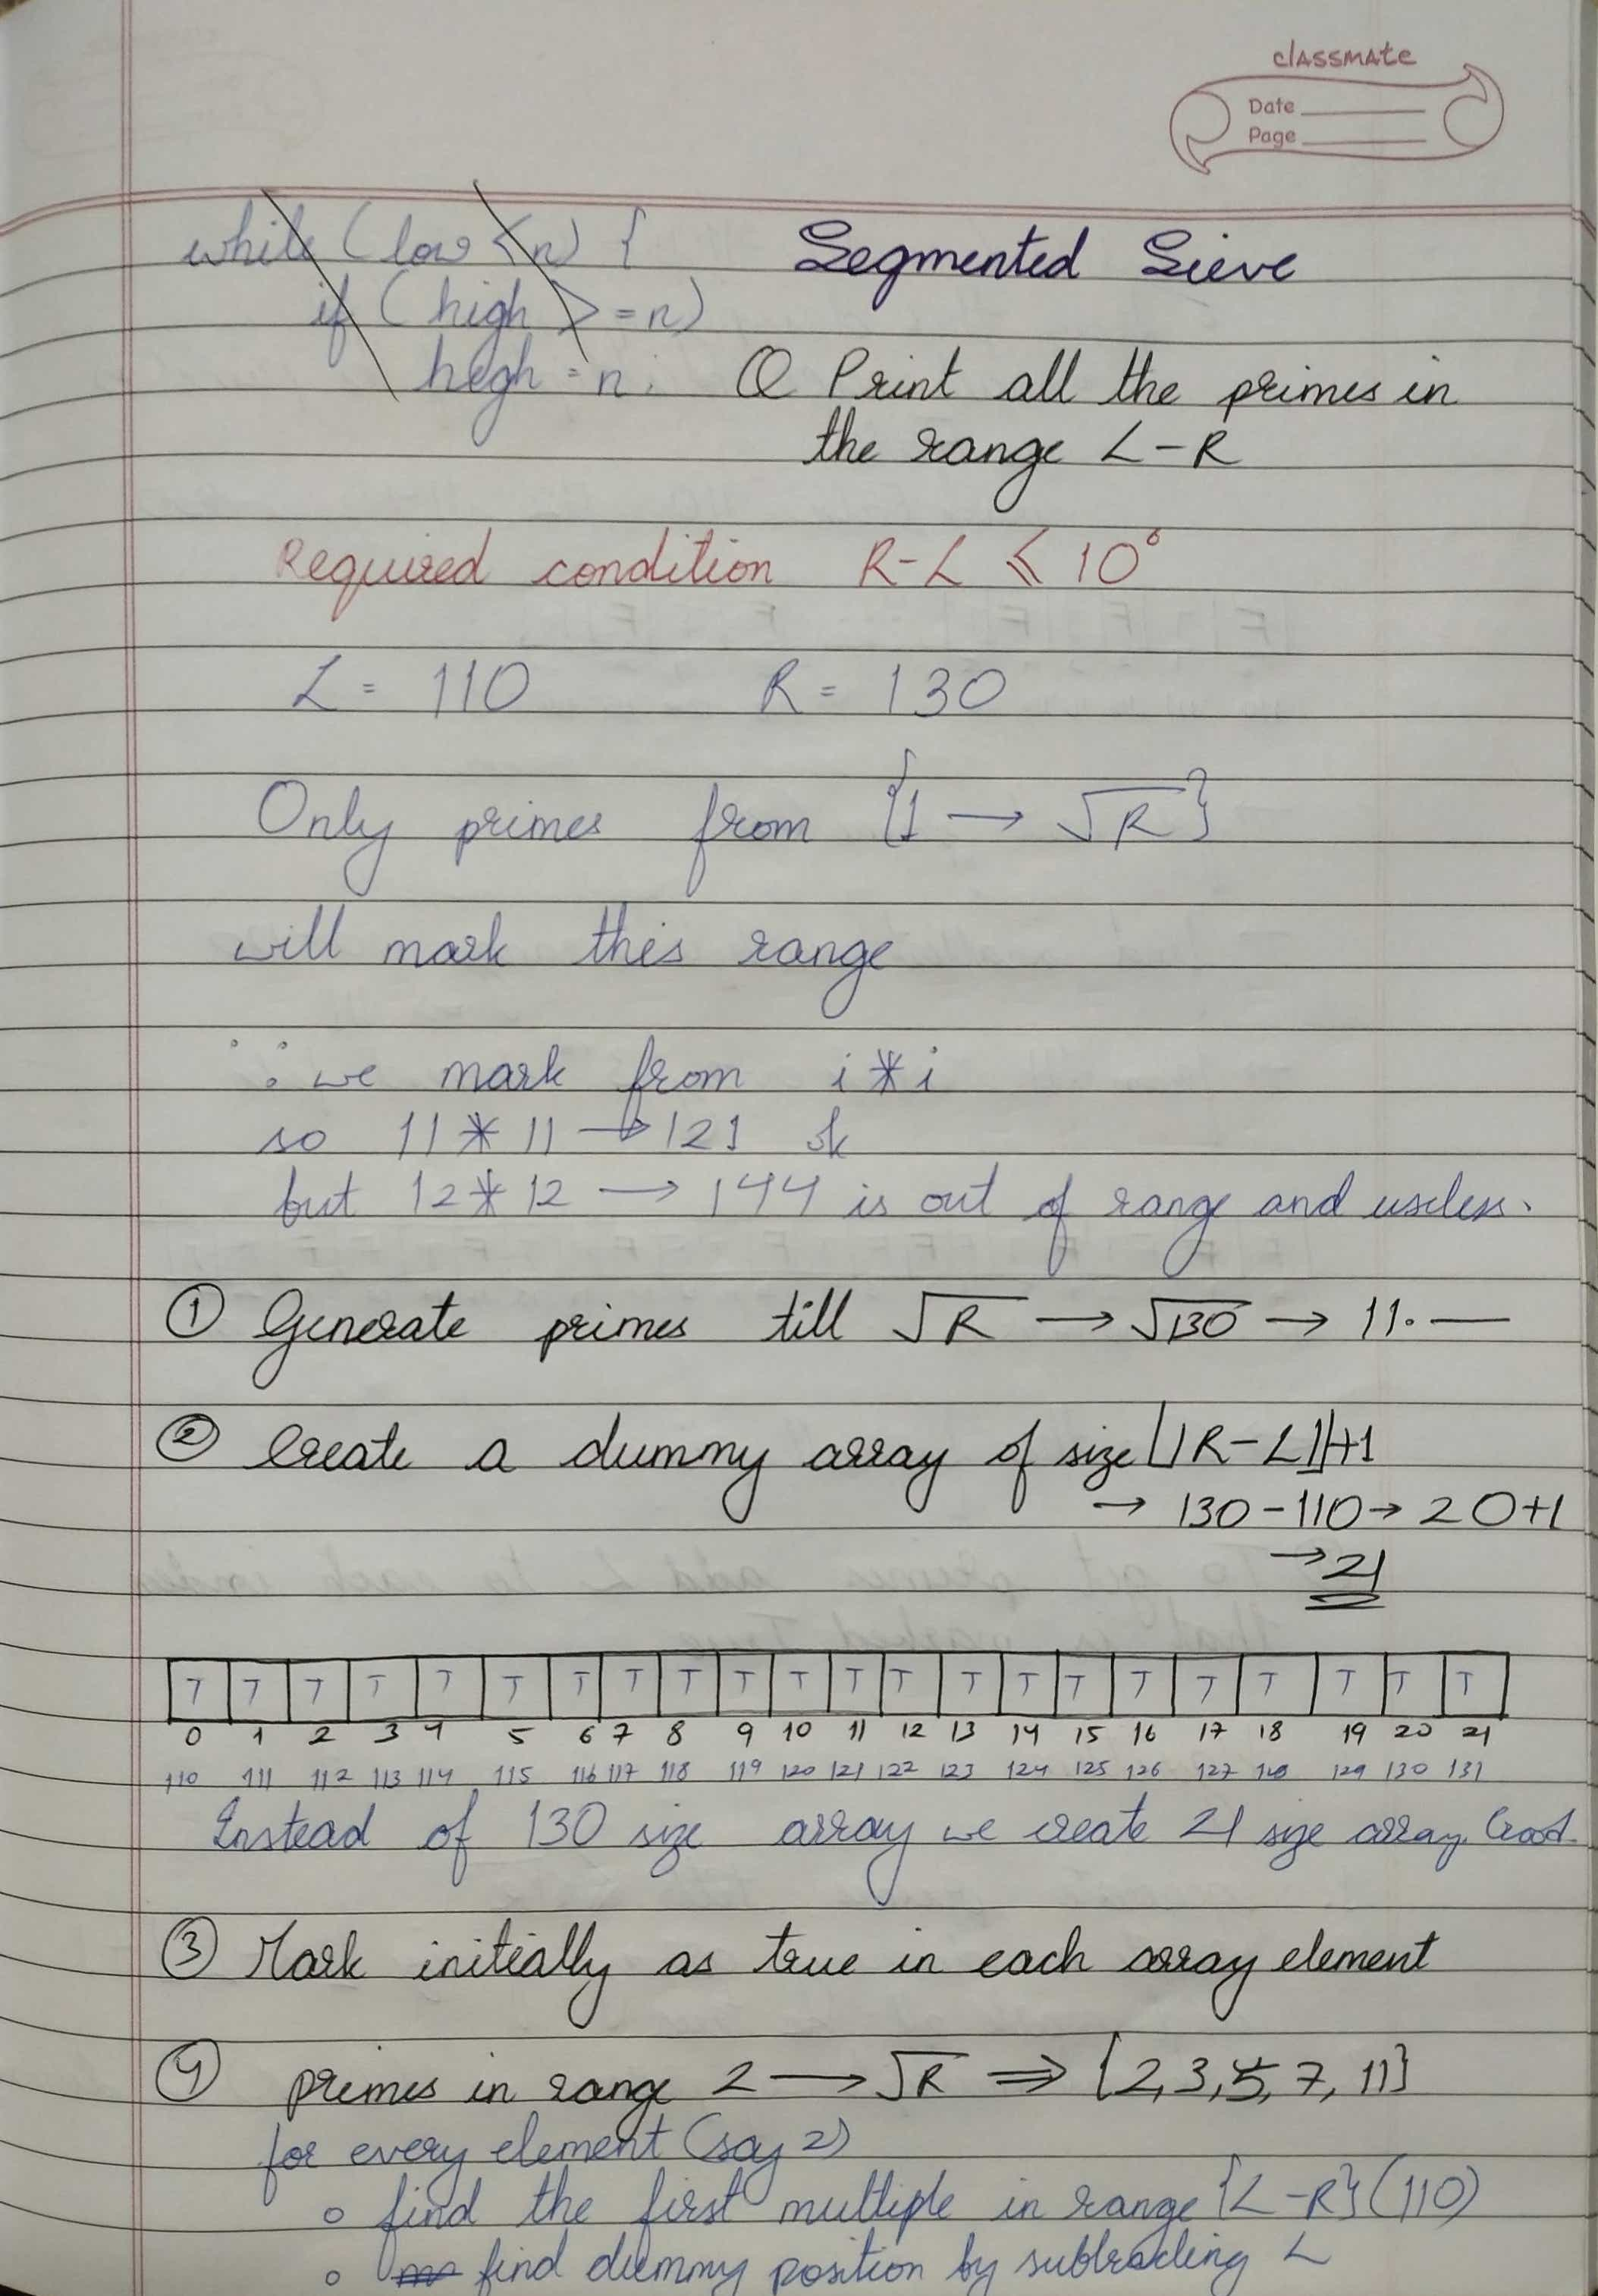 classmate
Date
Page
while (low < n) {
if (high >= n)
high = n.
Segmented Sieve
Q Print all the primes in
the range L-R
Required condition R-L ≤ 10⁶
L = 110 R = 130
Only primes from {1 → √R}
will mark this range
∵ we mark from i*i
so 11*11 → 121 ok
but 12*12 → 144 is out of range and useless.
① Generate primes till √R → √130 → 11. —
② Create a dummy array of size [|R-L|]+1
→ 130-110 → 20+1
→ 21
T T T T T T T T T T T T T T T T T T T T T T
0 1 2 3 4 5 6 7 8 9 10 11 12 13 14 15 16 17 18 19 20 21
110 111 112 113 114 115 116 117 118 119 120 121 122 123 124 125 126 127 128 129 130 131
Instead of 130 size array we create 21 size array. Good.
③ Mark initially as true in each array element
④ primes in range 2 → √R ⇒ {2,3,5,7,11}
for every element (say 2)
o find the first multiple in range {L-R} (110)
o find dummy position by subtracting L